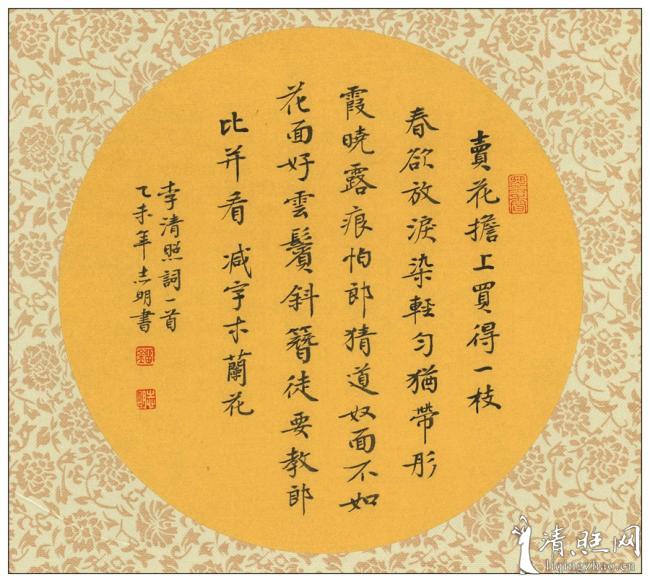 賣花擔上買得一枝
春欲放淚染輕勻猶帶彤
霞曉露痕怕郎猜道奴面不如
花面好雲鬢斜簪徒要教郎
比并看 減字木蘭花
李清照詞一首
乙未年志明書
清照网
liqingzhao.cn